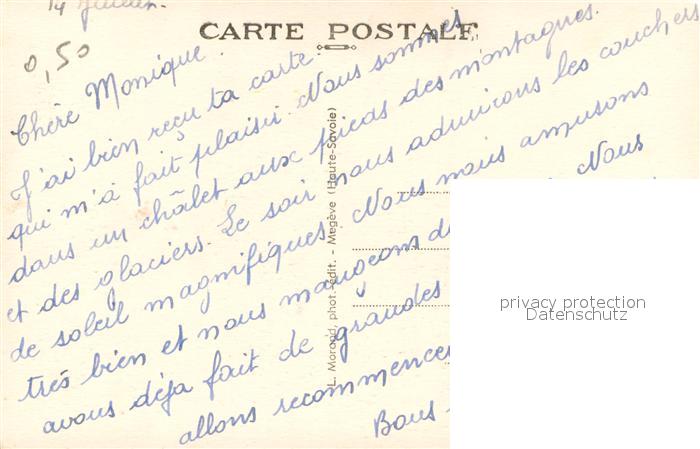 14 Juillet.
CARTE POSTALE
0,50
Chère Monique.
J'ai bien reçu ta carte
qui m'a fait plaisir. Nous sommes
dans un châlet aux pieds des montagnes.
et des glaciers. Le soir nous admirons les couchers
de soleil magnifiques. Nous nous amusons
très bien et nous mangeons Nous
avons déja fait de grandes
allons recommencer
Bons
L. Morand, phot.-édit. - Megève (Haute-Savoie)
privacy protection
Datenschutz